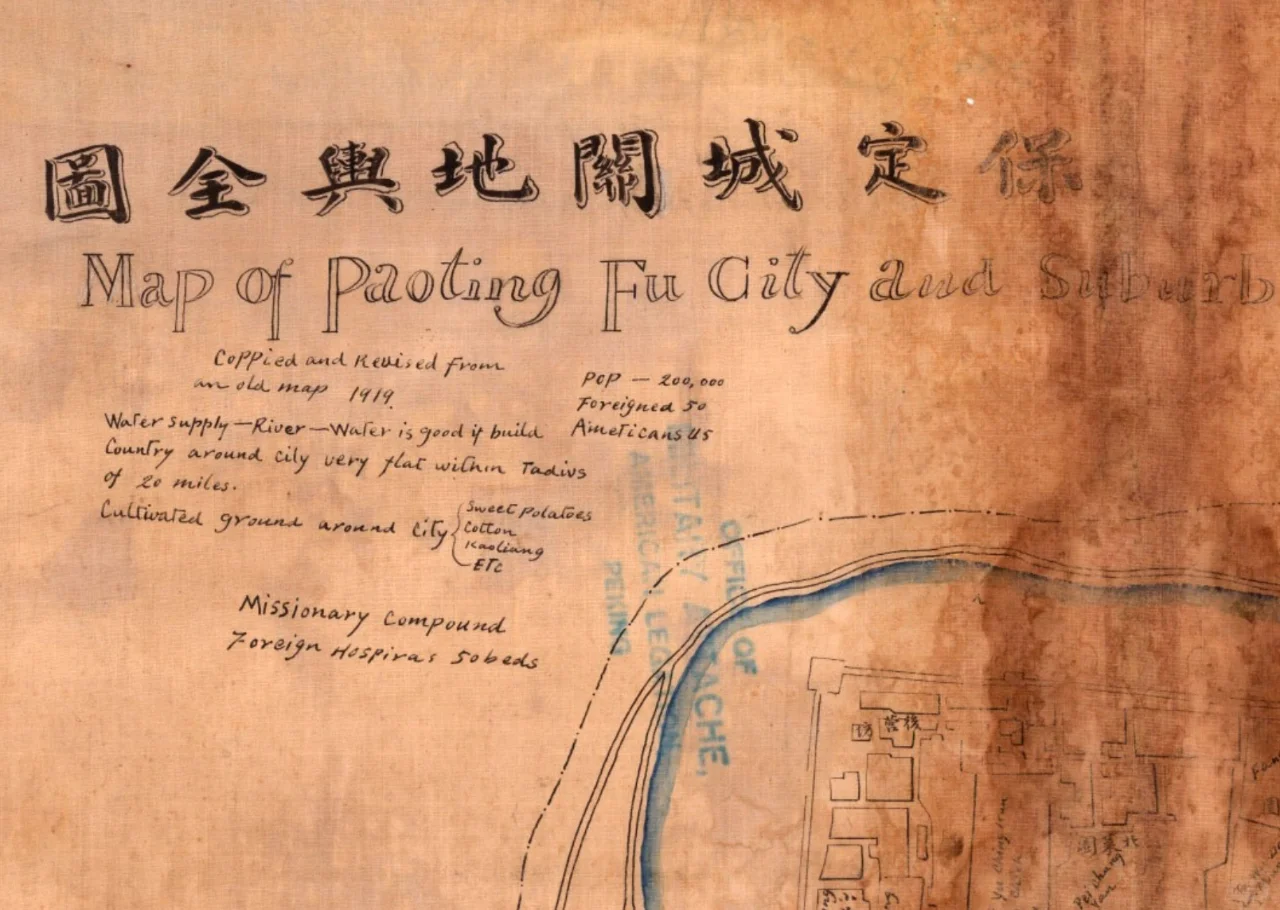 保定城關地輿全圖
Map of Paoting Fu City and Suburb
Coppied and Revised from
an old map 1919.
Water supply — River — Water is good if build
Country around city very flat within radius
of 20 miles.
Cultivated ground around city
Sweet Potatoes
Cotton
Kaoliang
ETC
POP — 200,000
Foreigned 50
Americans 45
Missionary Compound
Foreign Hospiras 50 beds
OFFICE OF
MILITARY ATTACHE,
AMERICAN LEGATION
PEKING